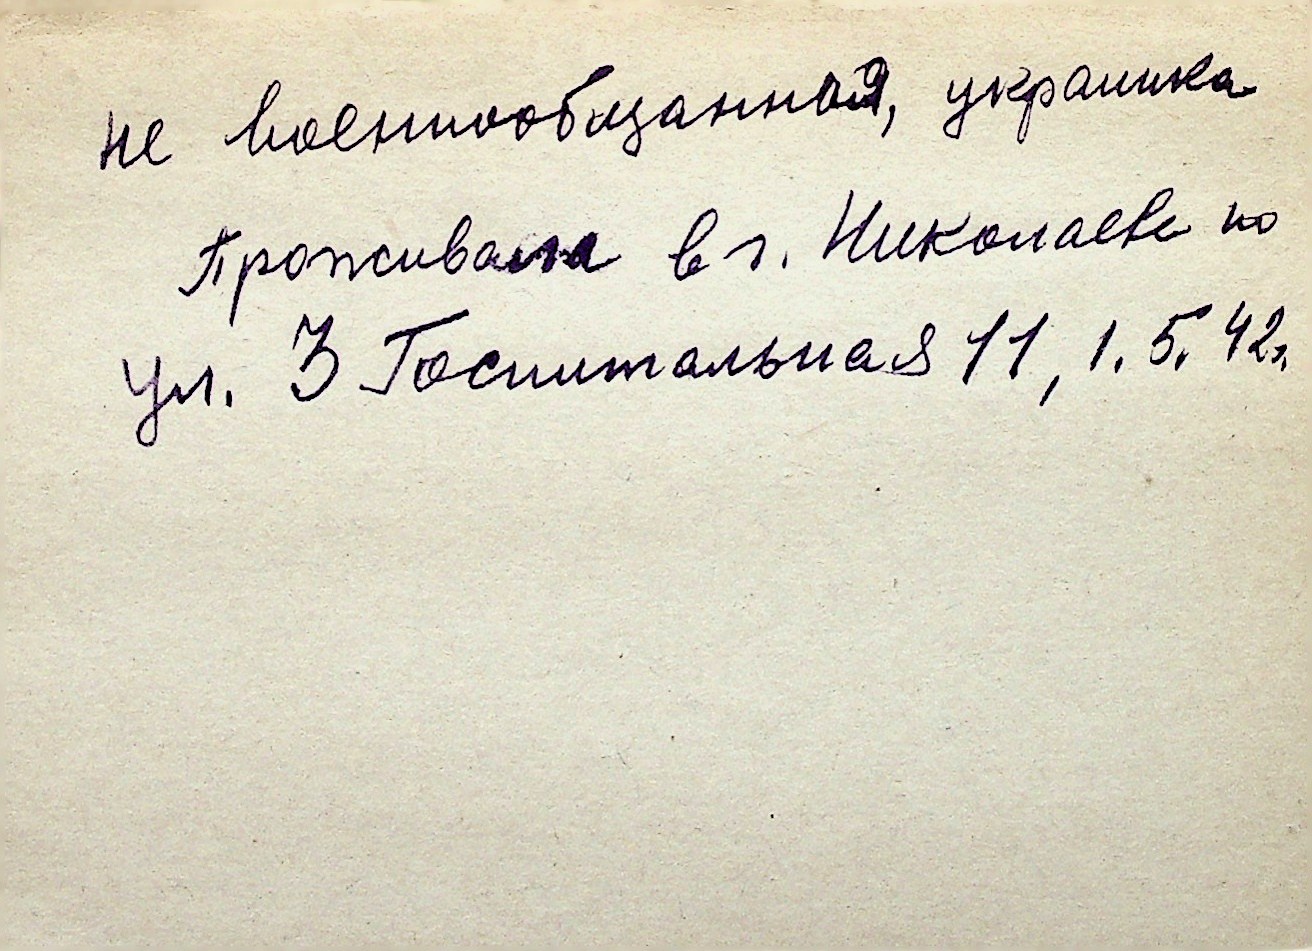 не военнообщанная, украинка
Проживала в г. Николаеве по
ул. 3 Госпитальная 11, 1. 5. 42г.